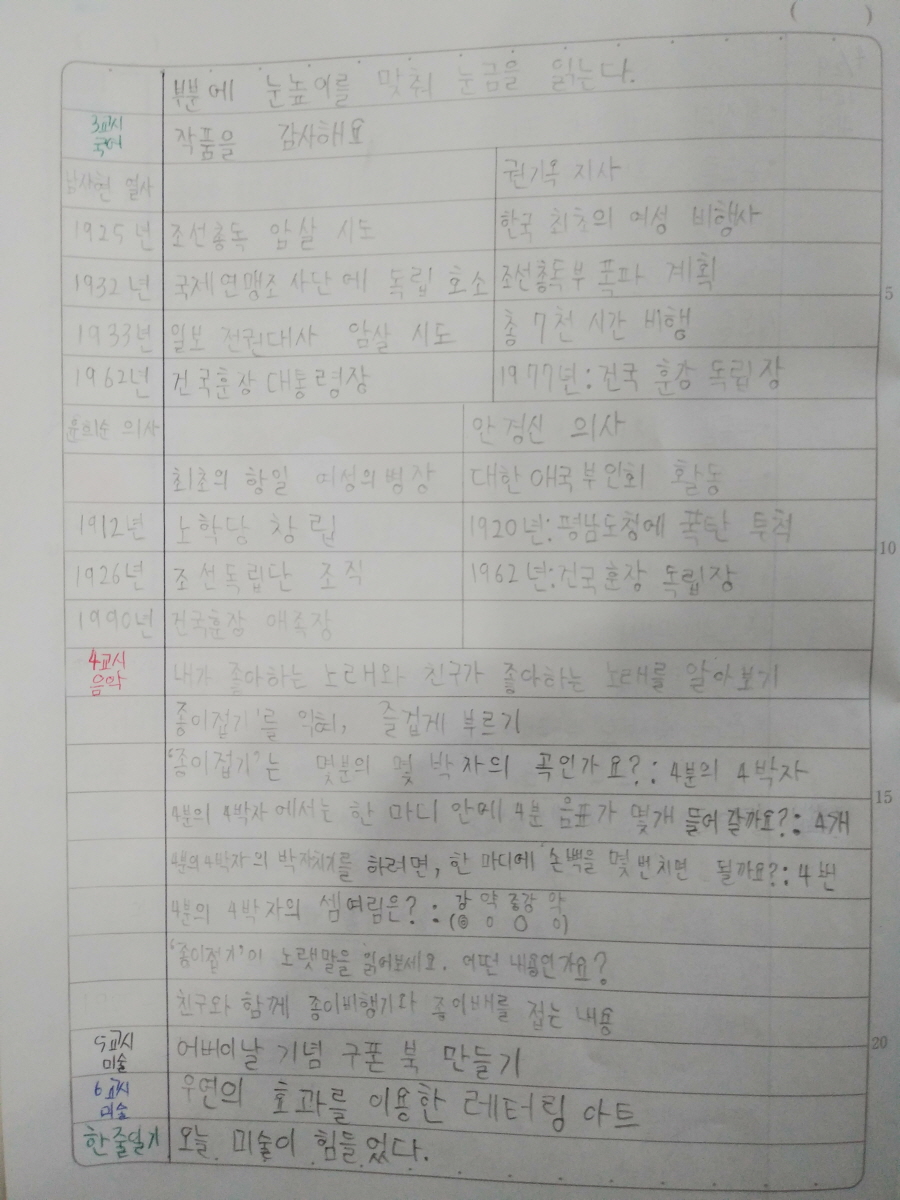 부분에 눈높이를 맞춰 눈금을 읽는다.
3교시 국어 작품을 감사해요
남자현 열사 권기옥 지사
1925년 조선총독 암살 시도 한국 최초의 여성 비행사
1932년 국제연맹조사단에 독립 호소 조선총독부 폭파 계획
5
1933년 일보 전권대사 암살 시도 총 7천 시간 비행
1962년 건국훈장 대통령장 1977년:건국 훈장 독립장
윤희순 의사 안경신 의사
최초의 항일 여성의병장 대한애국부인회 활동
1912년 노학당 창립 1920년:평남도청에 폭탄 투척
10
1926년 조선독립단 조직 1962년:건국훈장 독립장
1990년 건국훈장 애족장
4교시 음악 내가 좋아하는 노래와 친구가 좋아하는 노래를 알아보기
종이접기'를 익혀, 즐겁게 부르기
'종이접기'는 몇분의 몇 박자의 곡인가요?: 4분의 4박자
15
4분의 4박자에서는 한 마디 안에 4분 음표가 몇개 들어갈까요?: 4개
4분의4박자의 박자치기를 하려면, 한 마디에 손뼉을 몇 번 치면 될까요?: 4번
4분의 4박자의 셈여림은?: 강 약 중강 약
(◎ ○ ○ ○)
'종이접기'의 노랫말을 읽어보세요. 어떤 내용인가요?
친구와 함께 종이비행기와 종이배를 접는 내용
5교시 미술 어버이날 기념 쿠폰 북 만들기
20
6교시 미술 우연의 효과를 이용한 레터링 아트
한줄일기 오늘 미술이 힘들었다.